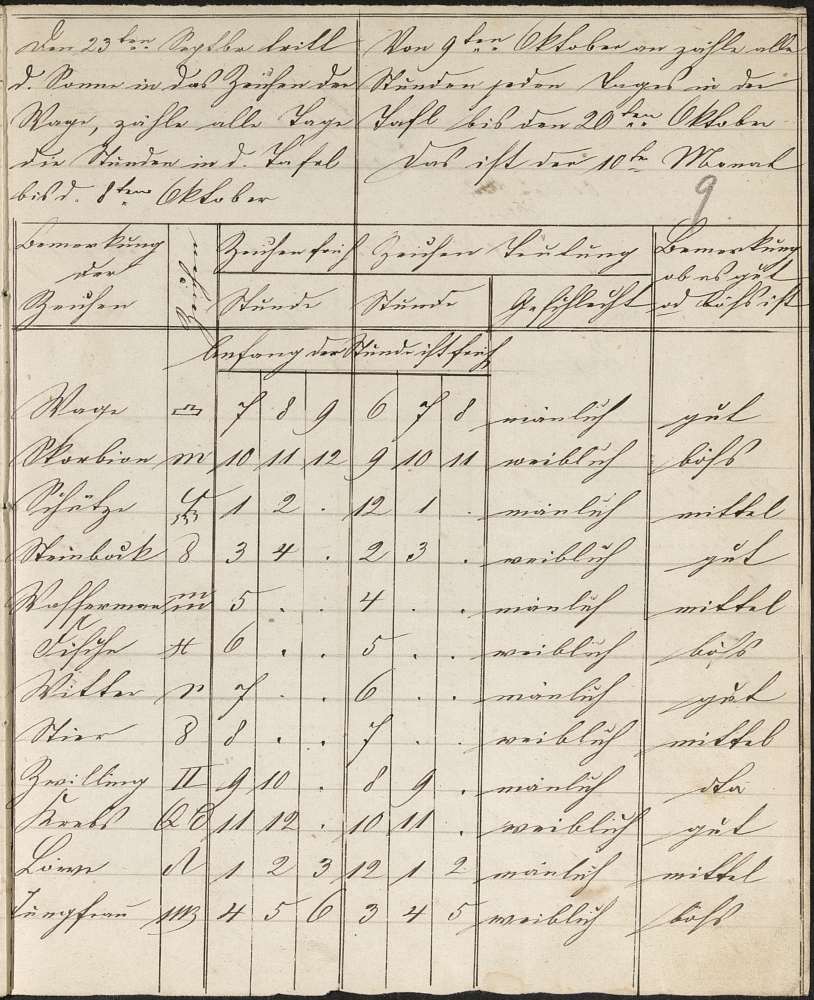 Den 23ten Septbr tritt
d. Sonne in das Zeichen der
Wage, zähle alle Tage
die Stunden in d. Tafel
bis d. 8ten Oktober
Von 9ten Oktober an zähle alle
Stunden jeden Tages in der
Tafl bis den 20ten Oktober
Das ist der 10te Monat
9
Bemerkung der Zeichen | Zeichen | Zeichen früh Stunde | Zeichen Stunde | Teutung Geschlecht | Bemerkung ob es gut od bößs ist
Anfang der Stunde ist früh
Wage ♎ 7 8 9 6 7 8 mänlich gut
Skorbion m 10 11 12 9 10 11 weiblich bößs
Schütze 1 2 . 12 1 . mänlich mittel
Steinbock 8 3 4 . 2 3 . weiblich gut
Wasserman 5 . . 4 . . mänlich mittel
Fische 6 . . 5 . . weiblich bößs
Witter 7 . . 6 . . mänlich gut
Stier 8 8 . . 7 . . weiblich mittel
Zwilling II 9 10 . 8 9 . mänlich dto
Krebs 11 12 . 10 11 . weiblich gut
Löwe 1 2 3 12 1 2 mänlich mittel
Jungfrau 4 5 6 3 4 5 weiblich bößs